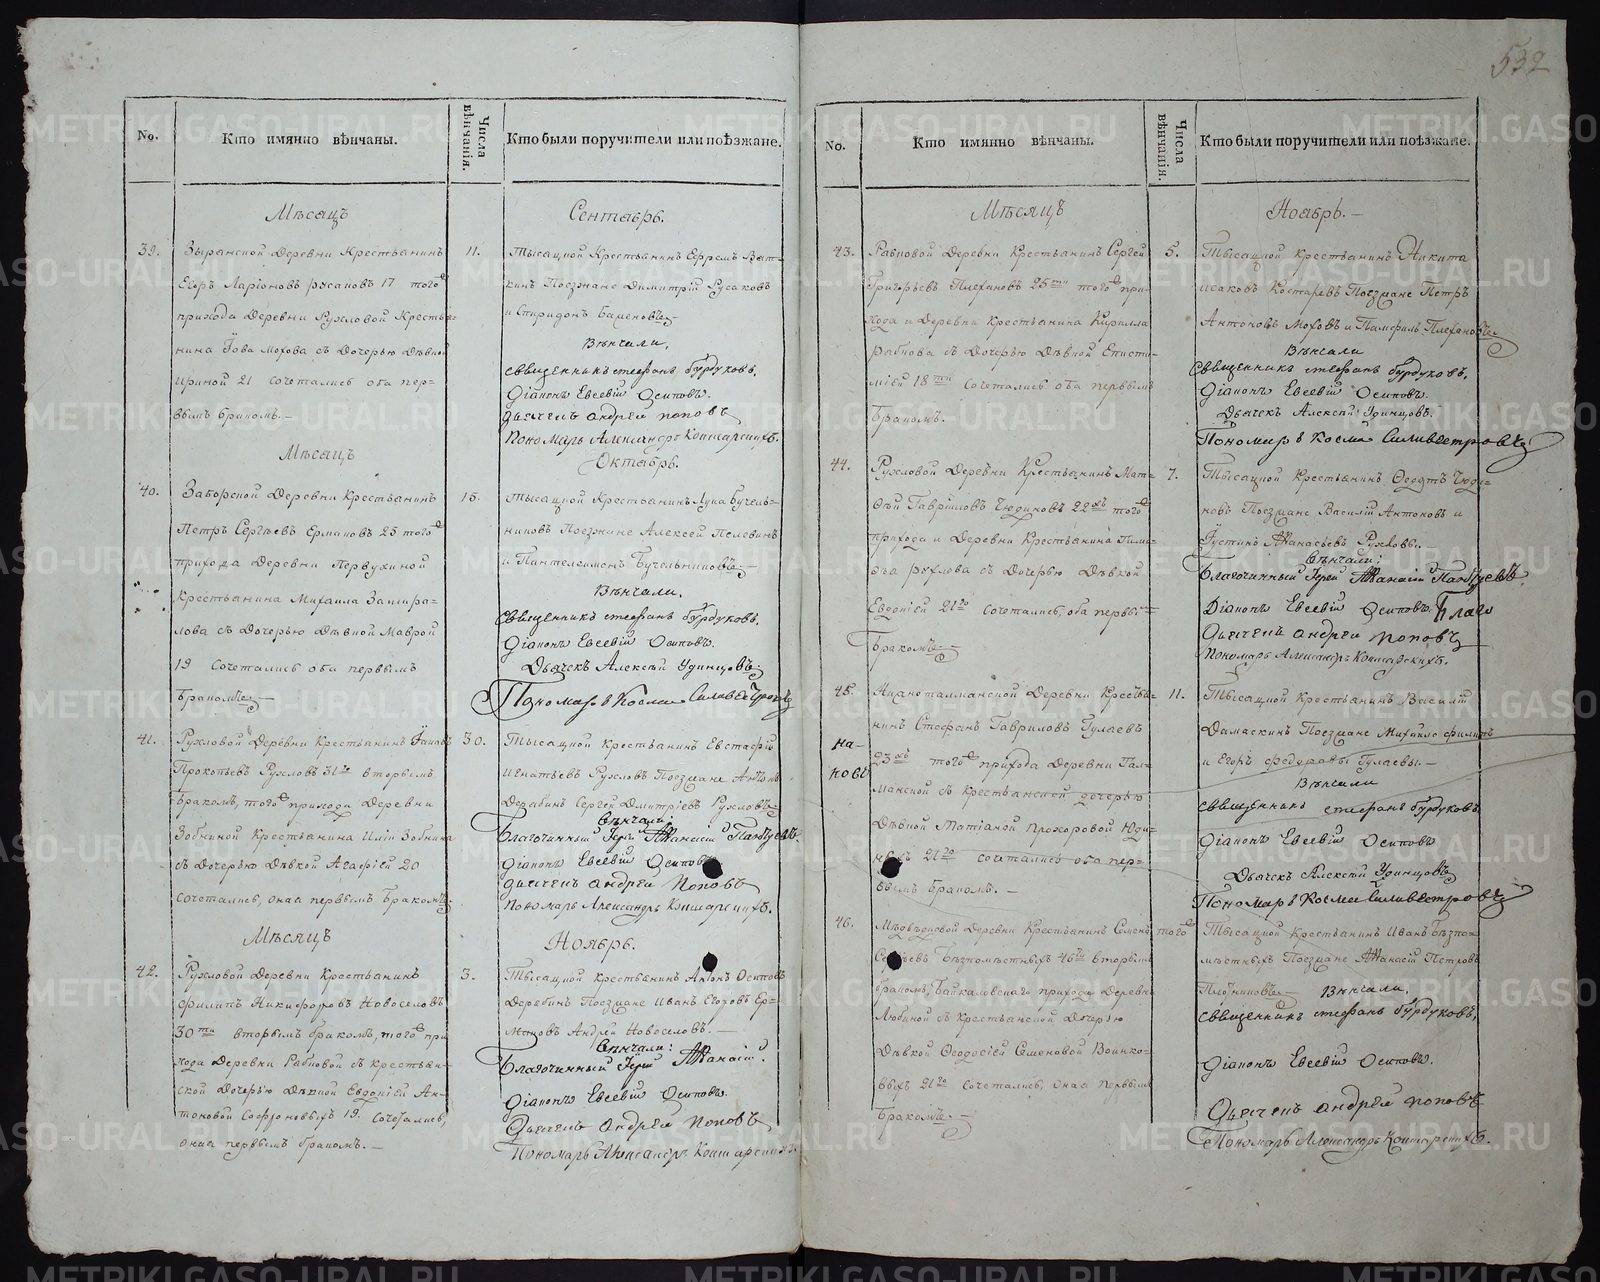 532
No.
Кто имянно вѣнчаны.
Числа вѣнчанія.
Кто были поручители или поѣзжане.
Мѣсяцъ
Сентябрь.
39.
Зырянской Деревни Крестьянинъ
Егоръ Ларіоновъ 17 того
прихода Деревни Рухловой Крестья-
нина Іова Мохова съ Дочерью Дѣвкой
Ириной 21 сочетались оба пер-
вымъ бракомъ.-
11.
Тысяцкой Крестьянинъ Ефремъ Вят-
кинъ Поезжане Димитрій Русаковъ
и Спиридонъ
Вѣнчали.
Священникъ стефанъ бурдуковъ.
Діаконъ Евсевій Осиповъ.
дьячекъ андрей поповъ
Пономарь Александръ
Мѣсяцъ
Октябрь.
40.
Заборской Деревни Крестьянинъ
Петръ Сергѣевъ Ермаковъ 25 того
прихода Деревни Первухиной
Крестьянина Михаила
лова съ Дочерью Дѣвкой Маврой
19 сочетались оба первымъ
бракомъ.-
15.
Тысяцкой Крестьянинъ Лука Бучель-
никовъ Поезжане Алексей Пелевинъ
и Пантелеимонъ Бучельниковъ.-
Вѣнчали.
Священникъ стефанъ бурдуковъ.
Діаконъ Евсевій Осиповъ.
Дьячекъ Алексѣй Удинцовъ.
Пономарь Косма Силивестровъ
41.
Рухловой Деревни Крестьянинъ Іаковъ
Прокопьевъ Рухловъ 31 вторымъ
бракомъ, того прихода Деревни
Зобниной Крестьянина Иліи Зобнина
съ Дочерью Дѣвкой Агафіей 20
сочетались, она первымъ Бракомъ.
30.
Тысяцкой Крестьянинъ Евстафій
Игнатьевъ Рухловъ Поезжане Антонъ
Дерябинъ Сергей Дмитріевъ Рухловъ
Вѣнчали:
Благочинный Іерей Афанасій
Діаконъ Евсевій Осиповъ
дьячекъ андрей поповъ
пономарь Александръ
Мѣсяцъ
Ноябрь.
42.
Рухловой Деревни Крестьянинъ
Филипъ Никифоровъ Новоселовъ
30 вторымъ бракомъ, того при
хода Деревни Рябковой съ крестьян-
ской Дочерью Дѣвкой Евдокіей Ан-
тоновой 19. сочетались,
она первымъ бракомъ.-
3.
Тысяцкой крестьянинъ Антонъ Осиповъ
Дерябинъ Поезжане Иванъ Егоровъ Ер-
маковъ Андрей Новоселовъ.-
Вѣнчали:
Благочинный Іерей Афанасій.
Діаконъ Евсевій Осиповъ.
Дьячекъ андрей поповъ
Пономарь Александръ
No.
Кто имянно вѣнчаны.
Числа вѣнчанія.
Кто были поручители или поѣзжане.
Мѣсяцъ
Ноябрь.-
43.
Рябковой Деревни Крестьянинъ Сергей
Григорьевъ Плехановъ 25 того при-
хода и Деревни Крестьянина Кирилла
Рябкова съ Дочерью Дѣвкой Еписти-
міей 18 сочетались оба первымъ
бракомъ.
5.
Тысяцкой крестьянинъ Никита
Исаковъ Костаревъ Поезжане Петръ
Антоновъ Моховъ и Памфилъ Плехановъ
Вѣнчали
Священникъ стефанъ бурдуковъ.
Діаконъ Евсевій Осиповъ.
Дьячекъ Алексѣй Удинцовъ.
Пономарь Косма Силивестровъ
44.
Рухловой Деревни Крестьянинъ Мат-
фѣй Гавріиловъ Чюдиковъ 22 того
прихода и Деревни Крестьянина Тимо-
фѣа рухлова съ Дочерью Дѣвкой
Евдокіей 21 сочетались, оба первы-
Бракомъ.-
7.
Тысяцкой Крестьянинъ Федотъ Чюди-
ковъ Поезжане Василій Антоновъ и
Іустинъ Афанасьевъ Рухловъ.
Вѣнчали:
Благочинный Іерей Афанасій
Діаконъ Евсевій Осиповъ. Благо
Дьячекъ андрей поповъ
Пономарь Александръ
45.
на-
ровъ
Нижнотаманской Деревни Крестья-
нинъ Стефанъ Гавриловъ Гулаевъ
23 того прихода Деревни Тал-
манской съ Крестьянской дочерью
Дѣвкой Матіаной Прохоровой Юди-
ныхъ 21 сочетались оба пер-
вымъ бракомъ.-
11.
Тысяцкой Крестьянинъ Василій
Дамаскинъ Поезжане Михайло филипъ
и Егоръ федоровы Гулаевы.-
Вѣнчали
священникъ стефанъ бурдуковъ
Діаконъ Евсевій Осиповъ
Дьячекъ Алексѣй Удинцовъ
Пономарь Косма Силивестровъ
46.
Медвѣдковой Деревни Крестьянинъ Семенъ
Безпомѣстныхъ 46 вторымъ
бракомъ, Байкаловскаго прихода Деревни
Любиной съ крестьянской Дочерью
Дѣвкой Феодосіей Семеновой Воинко-
выхъ 21 сочетались, она первымъ
Бракомъ.-
того
Тысяцкой Крестьянинъ Иванъ Безпо-
мѣстныхъ Поезжане Афанасій Петровъ
Плотниковъ.- Вѣнчали.
Священникъ стефанъ бурдуковъ,
Діаконъ Евсевій Осиповъ.
Дьячекъ андрей поповъ
Пономарь Александръ
METRIKI.GASO-URAL.RU